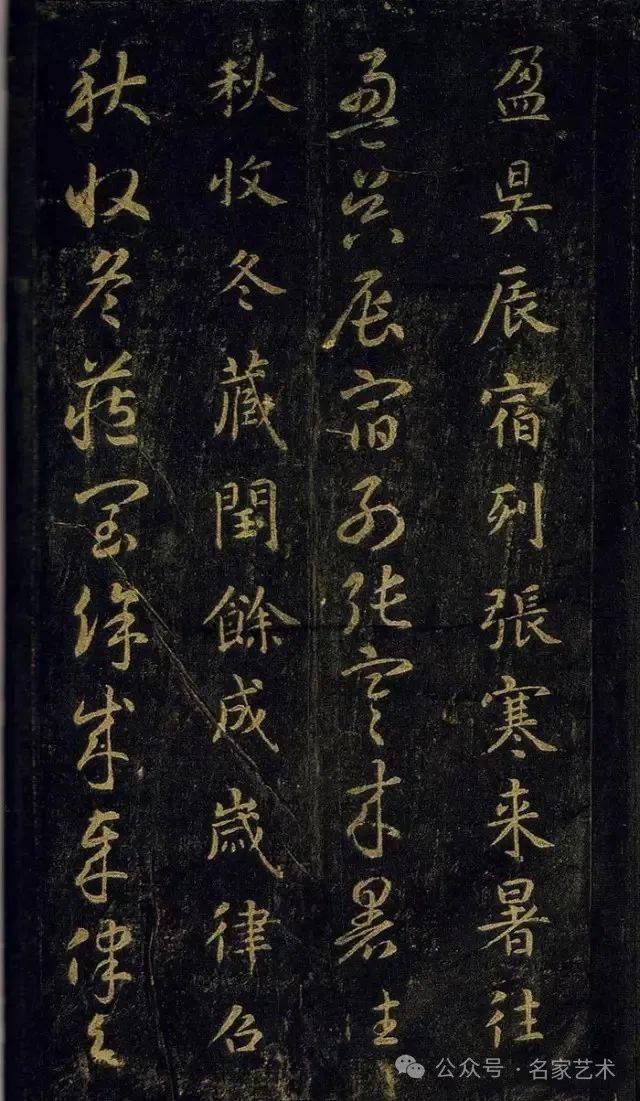 盈昃辰宿列張寒来暑往
盈昃辰宿列張寒来暑往
秋收冬藏閏餘成歲律召
秋收冬藏閏餘成歲律召
公众号·名家艺术